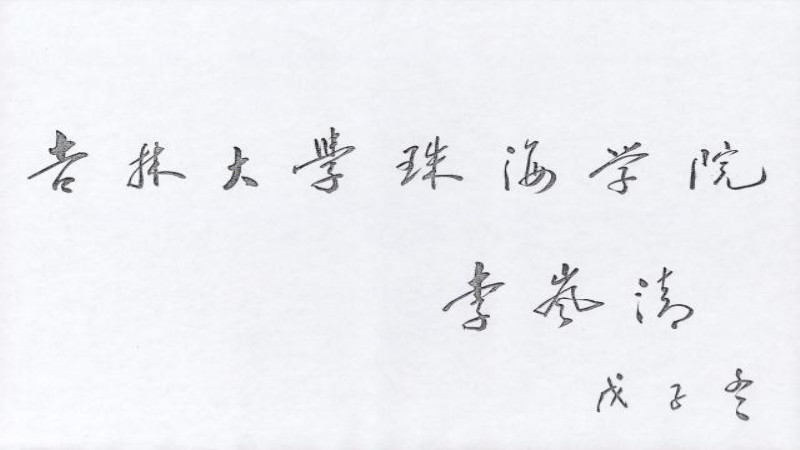 吉林大學珠海学院
李岚清
戊子冬